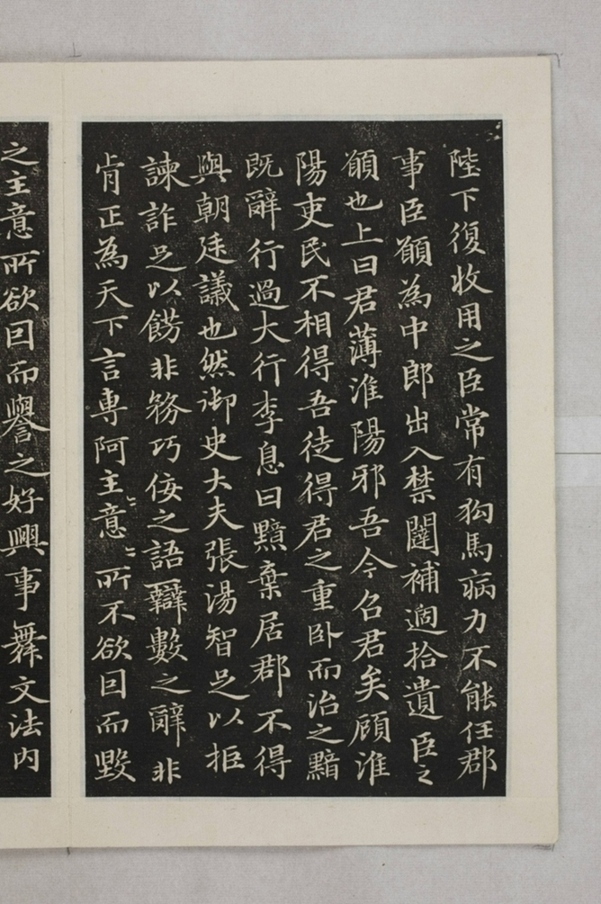 陛下復收用之臣常有狗馬病力不能任郡
事臣願為中郎出入禁闥補過拾遺臣之
願也上曰君薄淮陽邪吾今召君矣顧淮
陽吏民不相得吾徒得君之重卧而治之黯
既辭行過大行李息曰黯棄居郡不得
與朝廷議也然御史大夫張湯智足以拒
諫詐足以飾非務巧佞之語辯數之辭非
肯正為天下言專阿主〻意〻所不欲因而毀
之主意所欲因而譽之好興事舞文法内